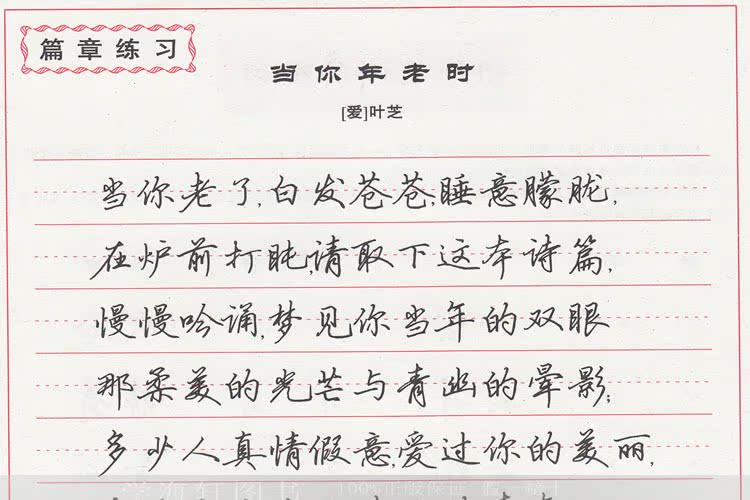 篇章练习
当你年老时
[爱]叶芝
当你老了,白发苍苍,睡意朦胧,
在炉前打盹,请取下这本诗篇,
慢慢吟诵,梦见你当年的双眼
那柔美的光芒与青幽的晕影;
多少人真情假意,爱过你的美丽,